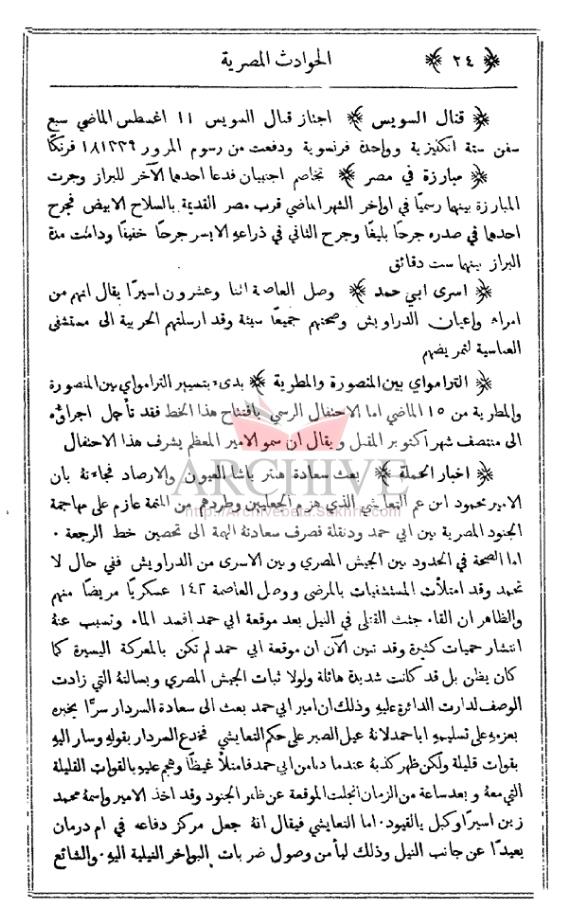 ﴿ ٢٤ ﴾ الحوادث المصرية
﴿ قنال السويس ﴾ اجتاز قنال السويس ١١ اغسطس الماضي سبع
سفن ستة انكليزية وواحدة فرنسوية ودفعت من رسوم المرور ١٨١٢٣٩ فرنكًا
﴿ مبارزة في مصر ﴾ تخاصم اجنبيان فدعا احدهما الآخر للبراز وجرت
المبارزة بينها رسميًا في اواخر الشهر الماضي قرب مصر القديمة بالسلاح الابيض فجرح
احدهما في صدره جرحًا بليغًا وجرح الثاني في ذراعهِ الايسر جرحًا خفيفًا ودامت مدة
البراز بينها ست دقائق
﴿ اسرى ابي حمد ﴾ وصل العاصمة اثنا وعشرون اسيرًا يقال انهم من
امراء واعيان الدراويش وصحتهم جميعًا سيئة وقد ارسلتهم الحربية الى مستشفى
العباسية لتمريضهم
﴿ الترامواي بين المنصورة والمطرية ﴾ بدىء بتسيير الترامواي بين المنصورة
والمطرية من ١٥ الماضي اما الاحتفال الرسمي بافتتاح هذا الخط فقد تأجل اجراؤه
الى منتصف شهر اكتوبر المقبل ويقال ان سمو الامير المعظم يشرف هذا الاحتفال
﴿ اخبار الحملة ﴾ بعث سعادة هنتر باشا العيون والارصاد فجاءته بان
الامير محمود ابن عم التعايشي الذي هزم الجعليين وطردهم من المتمة عازم على مهاجمة
الجنود المصرية بين ابي حمد ودنقلة فصرف سعادته الهمة الى تحصين خط الرجعة ٠
اما الصحة في الحدود بين الجيش المصري وبين الاسرى من الدراويش ففي حال لا
تحمد وقد امتلأت المستشفيات بالمرضى ووصل العاصمة ١٤٢ عسكريًا مريضًا منهم
والظاهر ان القاء جثث القتلى في النيل بعد موقعة ابي حمد افسد الماء وتسبب عنهُ
انتشار حميات كثيرة وقد تبين الآن ان موقعة ابي حمد لم تكن بالمعركة اليسيرة كما
كان يظن بل قد كانت شديدة هائلة ولولا ثبات الجيش المصري وبسالتهُ التي زادت
الوصف لدارت الدائرة عليهِ وذلك ان امير ابي حمد بعث الى سعادة السردار سرًّا يخبره
بعزمهِ على تسليمهِ ابا حمد لانهُ عيل الصبر على حكم التعايشي فخدع السردار بقولهِ وسار اليهِ
بقوات قليلة ولكن ظهر كذبهُ عندما دنا من ابي حمد فامتلأ غيظًا وهجم عليهِ بالقوات القليلة
التي معهُ وبعد ساعة من الزمان انجلت الموقعة عن ظفر الجنود وقد اخذ الامير واسمهُ محمد
زين اسيرًا وكبل بالقيود ٠ اما التعايشي فيقال انهُ جعل مركز دفاعه في ام درمان
بعيدًا عن جانب النيل وذلك ليأمن وصول ضربات البواخر النيلية اليهِ ٠ والشائع
ARCHIVE
http://Archivebeta.Sakhrit.com